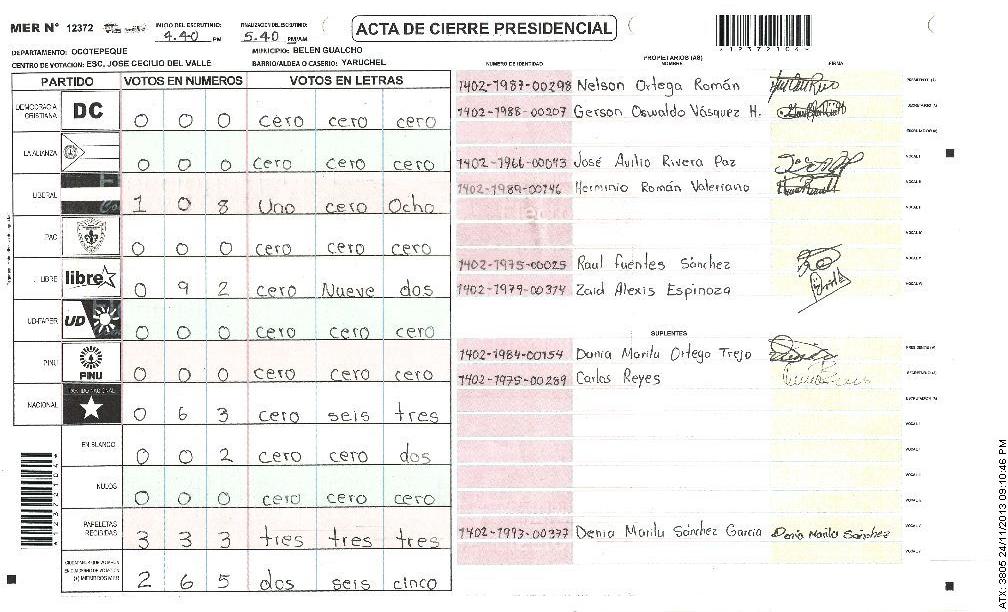 MER N° 12372
INICIO DEL ESCRUTINIO: 4.40 PM
FINALIZACION DEL ESCRUTINIO: 5.40 PM/AM
ACTA DE CIERRE PRESIDENCIAL
DEPARTAMENTO: OCOTEPEQUE MUNICIPIO: BELEN GUALCHO
CENTRO DE VOTACION: ESC. JOSE CECILIO DEL VALLE BARRIO/ALDEA O CASERIO: YARUCHEL
PARTIDO VOTOS EN NUMEROS VOTOS EN LETRAS
DEMOCRACIA CRISTIANA DC 0 0 0 cero cero cero
LA ALIANZA 0 0 0 cero cero cero
LIBERAL 1 0 8 Uno cero Ocho
PAC 0 0 0 cero cero cero
LIBRE libre 0 9 2 cero Nueve dos
UD-FAPER UD 0 0 0 cero cero cero
PINU PINU 0 0 0 cero cero cero
NACIONAL 0 6 3 cero seis tres
EN BLANCO 0 0 2 cero cero dos
NULOS 0 0 0 cero cero cero
PAPELETAS RECIBIDAS 3 3 3 tres tres tres
2 6 5 dos seis cinco
PROPIETARIOS (AS)
NUMERO DE IDENTIDAD NOMBRE FIRMA
1402-1987-00298 Nelson Ortega Román
1402-1988-00207 Gerson Oswaldo Vásquez H.
1402-1966-00043 José Avilio Rivera Paz
1402-1989-00146 Herminio Román Valeriano
1402-1975-00025 Raul Fuentes Sánchez
1402-1979-00374 Zaid Alexis Espinoza
SUPLENTES
1402-1984-00154 Dania Marilu Ortega Trejo
1402-1975-00289 Carlos Reyes
1402-1993-00377 Denia Marilu Sánchez Garcia Denia Marilu Sánchez
ATX: 3805 24/11/2013 09:10:46 PM